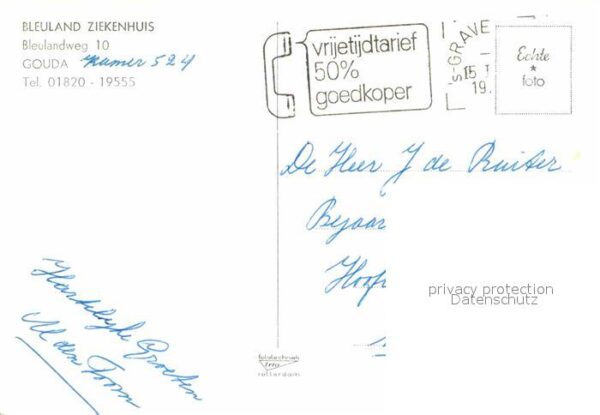 BLEULAND ZIEKENHUIS
Bleulandweg 10
GOUDA Kamer 524
Tel. 01820 - 19555
vrijetijdtarief
50%
goedkoper
s-GRAVE
15
19.
Echte
*
foto
De Heer J de Ruiter
Bejaar
Hoof
privacy protection
Datenschutz
Hartelijke Groeten
M den Toom
fototechniek
rotterdam